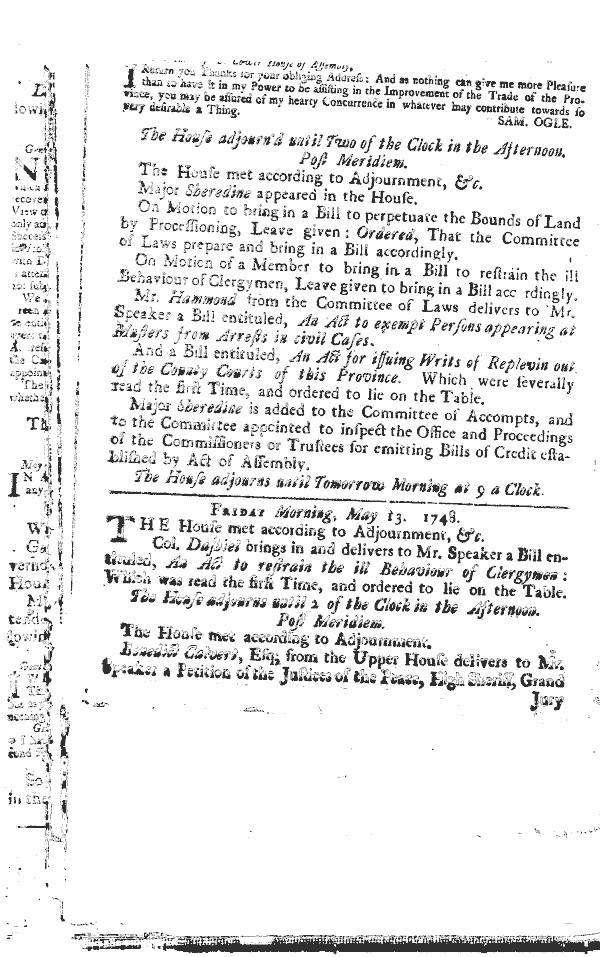 Lower House of Assembly,
I Return you Thanks for your obliging Address: And as nothing can give me more Pleasure
than to have it in my Power to be assisting in the Improvement of the Trade of the Pro-
vince, you may be assured of my hearty Concurrence in whatever may contribute towards so
very desirable a Thing.
SAM. OGLE.
The House adjourn'd until Two of the Clock in the Afternoon.
Post Meridiem.
The House met according to Adjournment, &c.
Major Sheredine appeared in the House.
On Motion to bring in a Bill to perpetuate the Bounds of Land
by Processioning, Leave given: Ordered, That the Committee
of Laws prepare and bring in a Bill accordingly.
On Motion of a Member to bring in a Bill to restrain the ill
Behaviour of Clergymen, Leave given to bring in a Bill acc rdingly.
Mr. Hammond from the Committee of Laws delivers to Mr.
Speaker a Bill entituled, An Act to exempt Persons appearing at
Musters from Arrests in civil Cases.
And a Bill entituled, An Act for issuing Writs of Replevin out
of the County Courts of this Province. Which were severally
read the first Time, and ordered to lie on the Table.
Major Sheredine is added to the Committee of Accompts, and
to the Committee appointed to inspect the Office and Proceedings
of the Commissioners or Trustees for emitting Bills of Credit esta-
blished by Act of Assembly.
The House adjourns until Tomorrow Morning at 9 a Clock.
FRIDAY Morning, May 13. 1748.
THE House met according to Adjournment, &c.
Col. brings in and delivers to Mr. Speaker a Bill en-
tituled, An Act to restrain the ill Behaviour of Clergymen:
Which was read the first Time, and ordered to lie on the Table.
The House adjourns until 2 of the Clock in the Afternoon.
Post Meridiem.
The House met according to Adjournment.
Benedict Calvert, Esq; from the Upper House delivers to Mr.
Speaker a Petition of the Justices of the Peace, High Sheriff, Grand
Jury